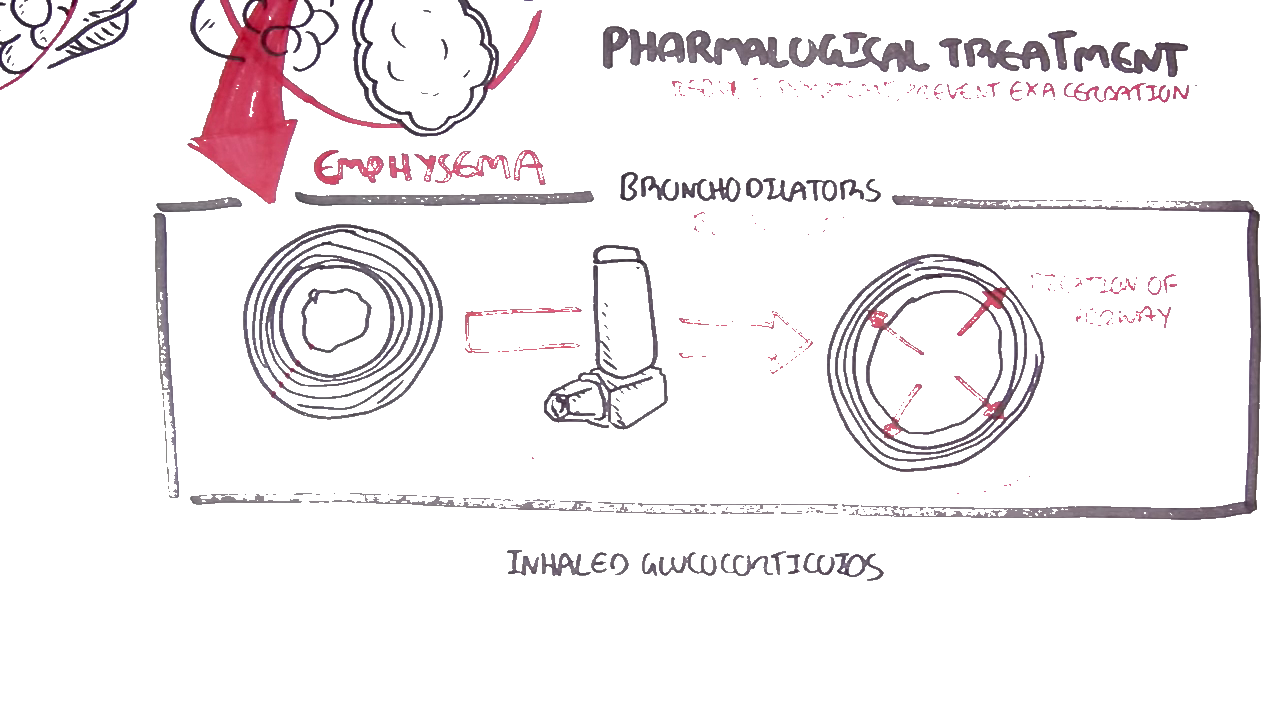 PHARMALOGICAL TREATMENT
PREVENT EXACERBATION
EMPHYSEMA
BRONCHODILATORS
OF
INHALED GLUCOCORTICOIDS